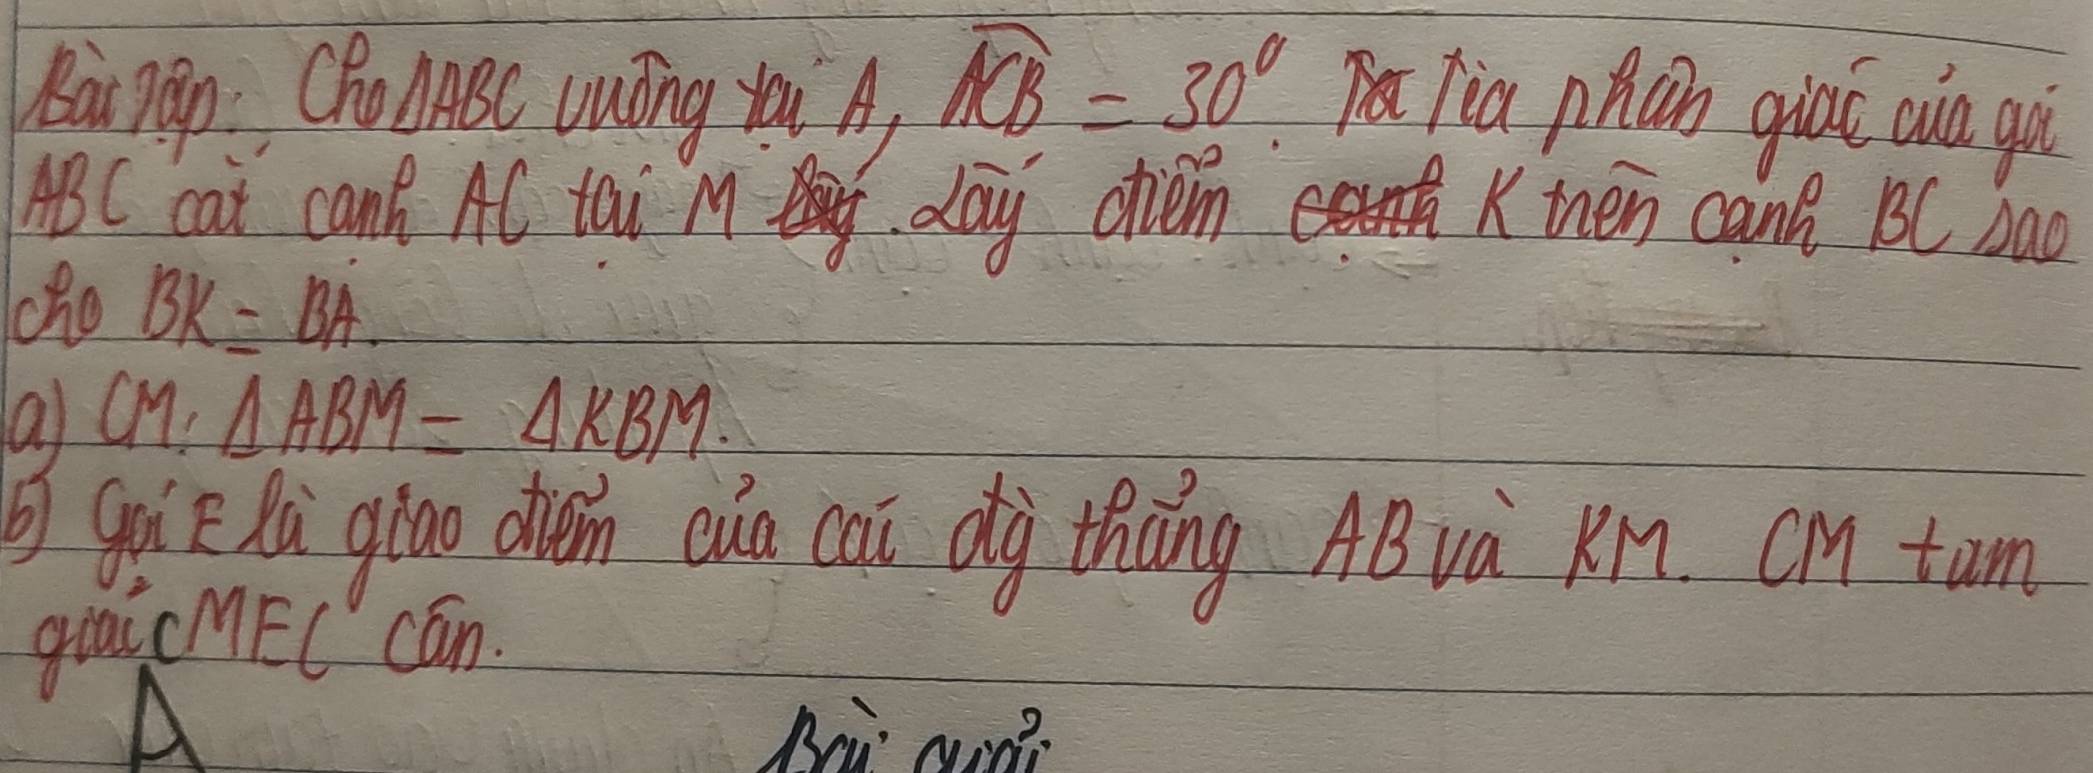 Bài tập: Cho ΔABC vuông tại A, ACB = 30⁰. Tia phân giác của góc
ABC cắt cạnh AC tại M. Lấy điểm K trên cạnh BC sao
cho BK = BA.
a) CM: ΔABM = ΔKBM.
b) Gọi E là giao điểm của các đg thẳng AB và KM. CM tam
giác MEC cân.
A
Bài giải